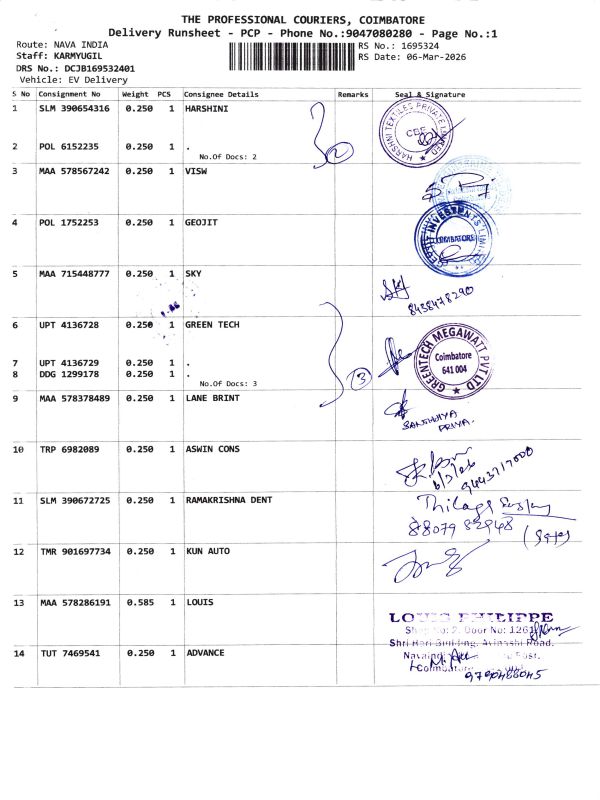 THE PROFESSIONAL COURIERS, COIMBATORE
Delivery Runsheet - PCP - Phone No.:9047080280 - Page No.:1
Route: NAVA INDIA
RS No.: 1695324
Staff: KARMYUGIL
RS Date: 06-Mar-2026
DRS No.: DCJB169532401
Vehicle: EV Delivery
S No Consignment No Weight PCS Consignee Details Remarks Seal & Signature
1 SLM 390654316 0.250 1 HARSHINI
HARSHNI TEXTILES PRIVATE LIMITED
CBE
2 POL 6152235 0.250 1 .
No.Of Docs: 2
2
3 MAA 578567242 0.250 1 VISW
4 POL 1752253 0.250 1 GEOJIT
GEOJIT INVESTMENTS LIMITED
COIMBATORE
5 MAA 715448777 0.250 1 SKY
8438478290
6 UPT 4136728 0.250 1 GREEN TECH
GREENTECH MEGAWATT PVT LTD
Coimbatore
641 004
7 UPT 4136729 0.250 1 .
8 DDG 1299178 0.250 1 .
No.Of Docs: 3
3
9 MAA 578378489 0.250 1 LANE BRINT
SANTHIYA
PRIYA.
10 TRP 6982089 0.250 1 ASWIN CONS
6/3/26
9443717000
11 SLM 390672725 0.250 1 RAMAKRISHNA DENT
88079 82948
12 TMR 901697734 0.250 1 KUN AUTO
13 MAA 578286191 0.585 1 LOUIS
LOUIS PHILIPPE
Shop No: 2, Door No: 1261
Shri Hari Building, Avinashi Road,
14 TUT 7469541 0.250 1 ADVANCE
9790488045